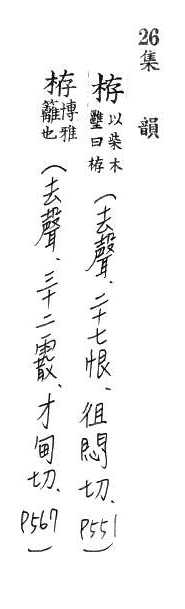 26 集韻
栫 以柴木壅曰栫 (去聲、二十七恨、徂悶切、P551)
栫 博雅籬也 (去聲、三十二霰、才甸切、P567)